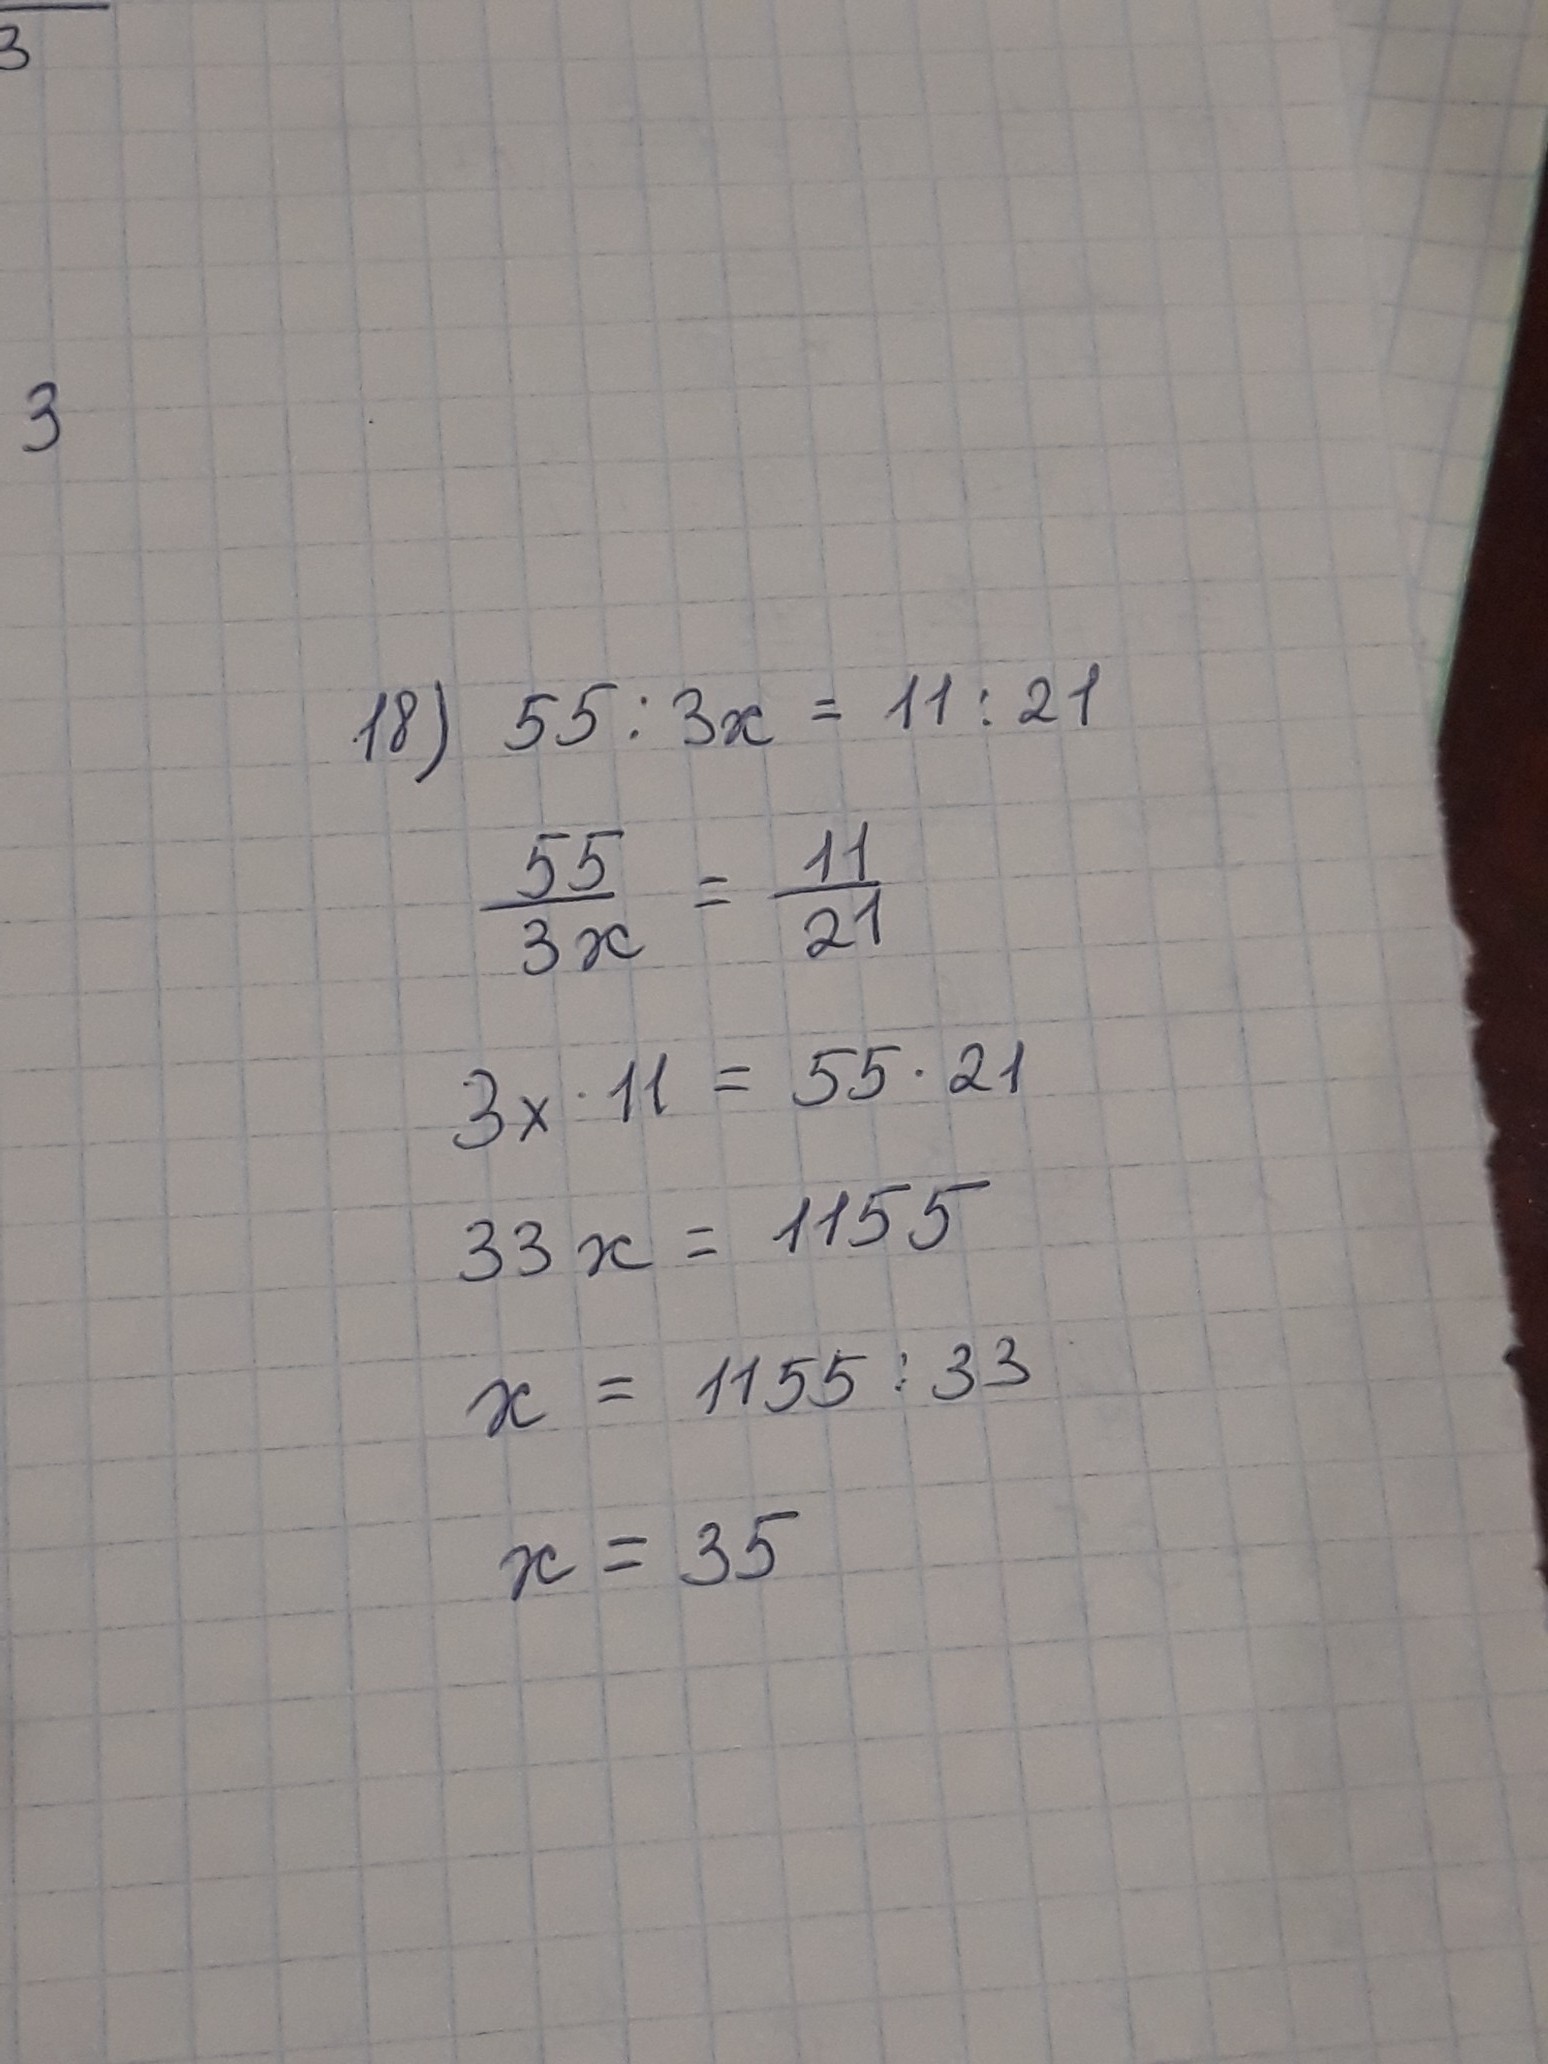 3
3
18) 55 : 3x = 11 : 21
55/3x = 11/21
3x · 11 = 55 · 21
33x = 1155
x = 1155 : 33
x = 35